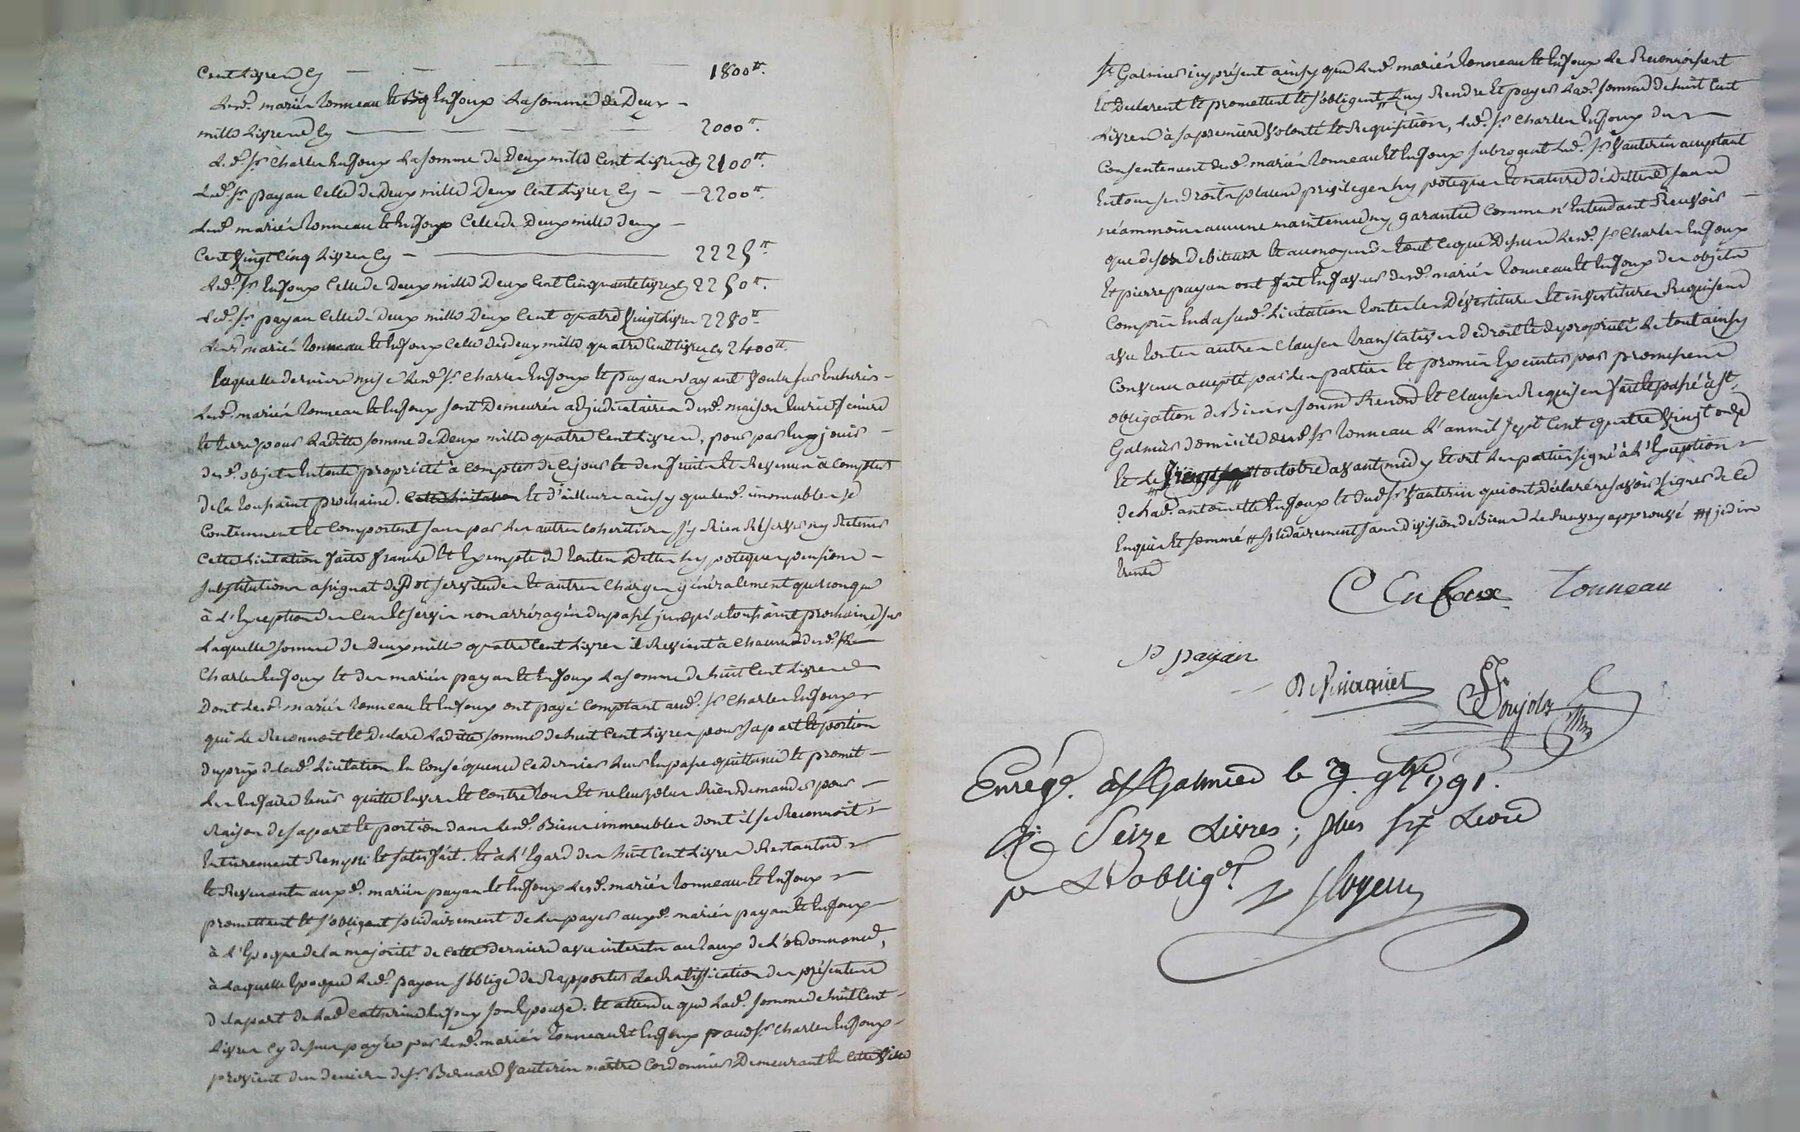 Cent Livres Cy — — — — 1800tt.
Lesd. mariés Tonneau et Enjoux La somme de Deux –
mille Livres Cy — — — — 2000tt.
Led. Sr. Charles Enjoux La somme de Deux mille Cent Livres Cy 2100tt.
Led. Sr. payan Celle de Deux mille Deux Cent Livres Cy — — 2200tt.
Lesd. mariés Tonneau et Enjoux Celle de Deux mille deux –
Cent Vingt Cinq Livres Cy — 2225tt.
Led. Sr. Enjoux Celle de Deux mille Deux Cent Cinquante Livres Cy 2250tt.
Led. Sr. payan Celle de Deux mille Deux Cent quatre Vingt Livres 2280tt.
Lesd. mariés Tonneau et Enjoux Celle de deux mille quatre Cent Livres Cy 2400tt.
Laquelle derniere mise Lesd. Sr. Charles Enjoux et payan n'ayant Voulu
Lesd. mariés Tonneau et Enjoux sont Demeurés adjudicataires desd. maison
et terre pour Laditte somme de Deux mille quatre Cent Livres, pour par Eux jouir –
desd. objets En toute propriété à Compter de Ce jour et des fruits et Revenus à Compter
de la toussaint prochaine. Cette Licitation et d'ailleurs ainsy que lesd. immeubles se
Contiennent et Comportent sans par Les autres Coheritiers s'y Rien Réserver ny Retenir
Cette Licitation faite franche et Exempte de toutes Dettes hypoteques pensions –
substitutions assignat de Dot servitudes et autres Charges généralement quelconque
à L'Exception des Cens et servis non arréragés du passé jusqu'à toussaint prochaine, sur
Laquelle somme de Deux mille quatre Cent Livres il Revient à Chacun desd. Sr.
Charles Enjoux et des mariés payan et Enjoux La somme de huit Cent Livres
Dont Lesd. mariés Tonneau et Enjoux ont payé Comptant aud. Sr. Charles Enjoux
qui Le Reconnoit et Declare Laditte somme de huit Cent Livres pour sa part et portion
du prix de lad. Licitation En Conséquence Ce dernier Leur En passe quittance et promet –
Les En faire tenir quitte Envers et Contre tous et ne leur Rien Demander pour –
Raison de sa part et portion dans lesd. Biens immeubles dont il se Reconnoit
Entierement Remply et satisfait. Et à L'Egard des huit Cent Livres Restantes
et Revenants auxd. mariés payan et Enjoux Lesd. mariés Tonneau et Enjoux
promettent et s'obligent solidairement de Les payer auxd. mariés payan et Enjoux –
à L'Epoque de la majorité de Cette derniere avec interets au taux de L'ordonnance,
à Laquelle Epoque Led. payan s'oblige de Rapporter La Ratiffication des présentes
de la part de Lad. Catherine Enjoux son Epouze. Et attendu que Lad. somme de huit Cent –
Livres Cy dessus payée par Lesd. mariés Tonneau et Enjoux aud. Sr. Charles Enjoux –
provient des deniers de Sr. Bernard Vauterin maitre Cordonnier Demeurant En Cette Ville
St. Galmier icy présent ainsy que Lesd. mariés Tonneau et Enjoux Le Reconnoissent
et Declarent et promettent et s'obligent Luy Rendre et payer Lad. somme de huit Cent
Livres à sa premiere Volonté et Requisition, Led. Sr. Charles Enjoux du
Consentement desd. mariés Tonneau et Enjoux subrogent Led. Sr. Vauterin acceptant
En tous ses droits places privileges hypoteques et nature de Dettes sans
néammoins aucune maintenue ny garantie Comme n'Entendant Recevoir –
que de ses debiteurs et au moyen de tout Ce que Dessus Lesd. Sr. Charles Enjoux
Et pierre payan ont fait En faveur desd. mariés Tonneau et Enjoux des objets
Compris En la susd. Licitation toutes Les Dévestitures et investitures Requises
avec toutes autres Clauses translatives de droit et de propriété Le tout ainsy
Convenu accepté par Les parties et promis Executer par promesses
obligation de Biens soumis Renond. et Clauses Requises fait et passé à St.
Galmier domicile dud. Sr. Tonneau L'an mil sept Cent quatre Vingt onze
et Le Vingt sept octobre avant midy et ont Les parties signé à L'Exception
de Lad. antoinette Enjoux et dud. Sr. Vauterin qui ont déclaré ne savoir signer de Ce
Enquis et sommé # solidairement sans division de Biens Le Renvoy approuvé # je dis
trente
C Enjoux Tonneau
P payan
Pujolas
Enrég. à St Galmier le 9 9bre 1791.
R. Seize Livres; plus six Livres
pr L'oblig.on